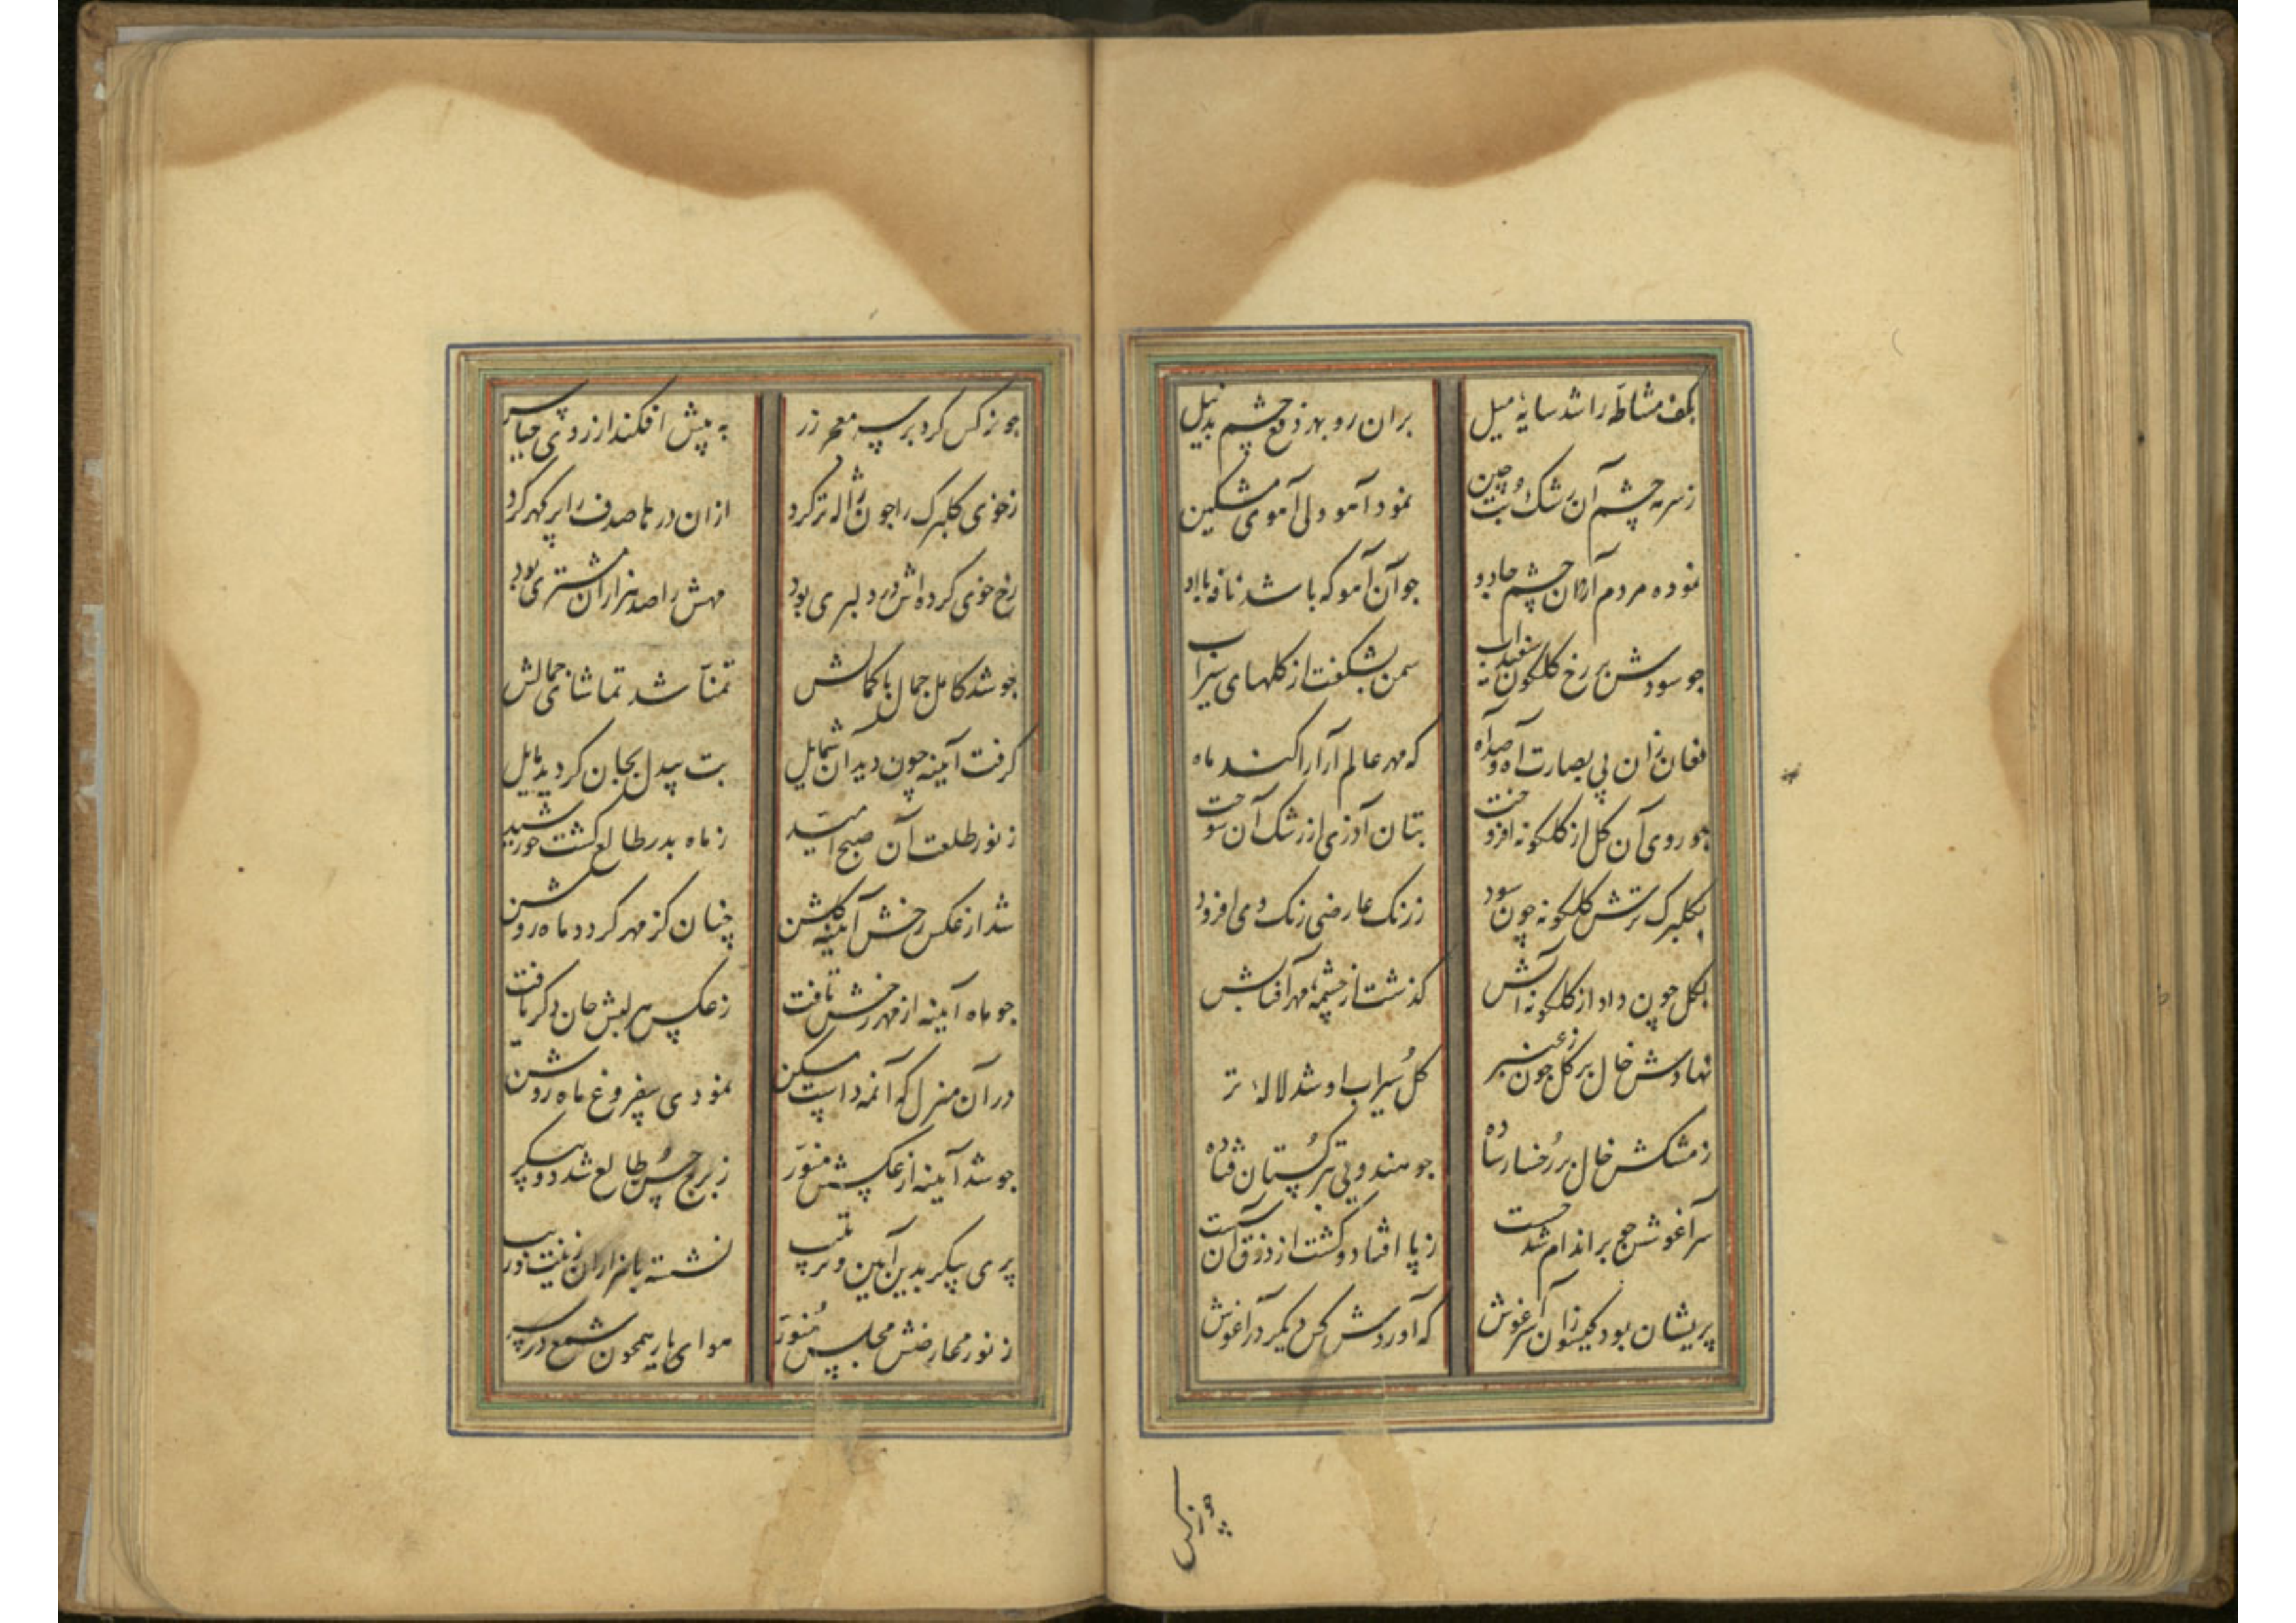 بکف مشاطه را شد سایهٔ میل
بران رو بهر دفع چشم بد نیل
ز سرمه چشم آن رشک بت چین
نمود آهو ولی آهوی مشکین
نموده مردم آن چشم جادو
جو آن آهو که باشد نافه با او
جو سودش بر رخ گلگون سفیداب
سمن بشکفت از گلهای سیراب
فغان زان بی بصارت آه و صد آه
که مهر عالم آرا را کند ماه
جو روی آن گل از گلگونه افروخت
بتان آذری از رشک آن سوخت
بگلبرگ ترش گلگونه چون سود
ز رنگ عارضی رنگ وی افزود
بگل جون داد از گلگونه آتش
گذشت از چشمهٔ مهر آفتابش
نهادش خال بر گل جون ز عنبر
گل سیراب او شد لالهٔ تر
ز مشکش خال بر رخسار ساده
جو هندویی بترکستان فتاده
سرآغوشن جج بر اندام شد جست
ز پا افتاد و گشت از ذوق آن سست
پریشان بود گیسو زان سرآغوش
که آوردش کس دیگر در آغوش
چو نرگس
جو نرگس کرد بر سر معجر زر
به پیش افکند از روی حیا سر
ز خوی گلبرگ را جون ژاله تر کرد
ازان درها صدف را پر گهر کرد
رخ خوی کرده اش در دلبری بود
مهش را صد هزاران مشتری بود
جو شد کامل جمال با کمالش
تمنا شد تماشای جمالش
گرفت آیینه چون دید آن شمایل
بت بیدل بجان گردید مایل
ز نور طلعت آن صبح امید
ز ماه بدر طالع گشت خورشید
شد از عکس رخش آیینه گلشن
چنان کز مهر گردد ماه روشن
جو ماه آیینه از مهر رخش تافت
ز عکس هر لبش جان دگر یافت
در آن منزل که آن مه داشت مسکن
نمودی بیفروغ ماه روشن
جو شد آیینه از عکسش منور
ز برج حسن طالع شد دو پیکر
پری پیکر بدین آیین و ترتیب
نشسته با هزاران زینت و زیب
ز نور عارضش مجلس منور
هوای یار همچون شمع در سر